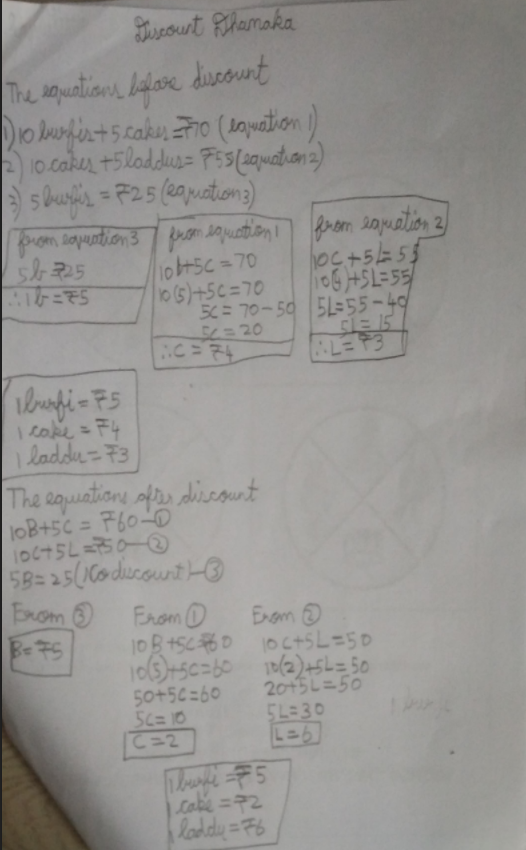 Discount Dhamaka
The equations before discount
1) 10 burfis + 5 cakes = ₹70 (equation 1)
2) 10 cakes + 5 laddus = ₹55 (equation 2)
3) 5 burfis = ₹25 (equation 3)
from equation 3
5b = ₹25
∴ 1b = ₹5
from equation 1
10b + 5C = 70
10(5) + 5C = 70
5C = 70 - 50
5C = 20
∴ C = ₹4
from equation 2
10C + 5L = 55
10(4) + 5L = 55
5L = 55 - 40
5L = 15
∴ L = ₹3
1 burfi = ₹5
1 cake = ₹4
1 laddu = ₹3
The equations after discount
10B + 5C = ₹60 - ①
10C + 5L = ₹50 - ②
5B = 25 (No discount) - ③
From ③
B = ₹5
From ①
10B + 5C = ₹60
10(5) + 5C = 60
50 + 5C = 60
5C = 10
C = 2
From ②
10C + 5L = 50
10(2) + 5L = 50
20 + 5L = 50
5L = 30
L = 6
1 burfi = ₹5
1 cake = ₹2
1 laddu = ₹6